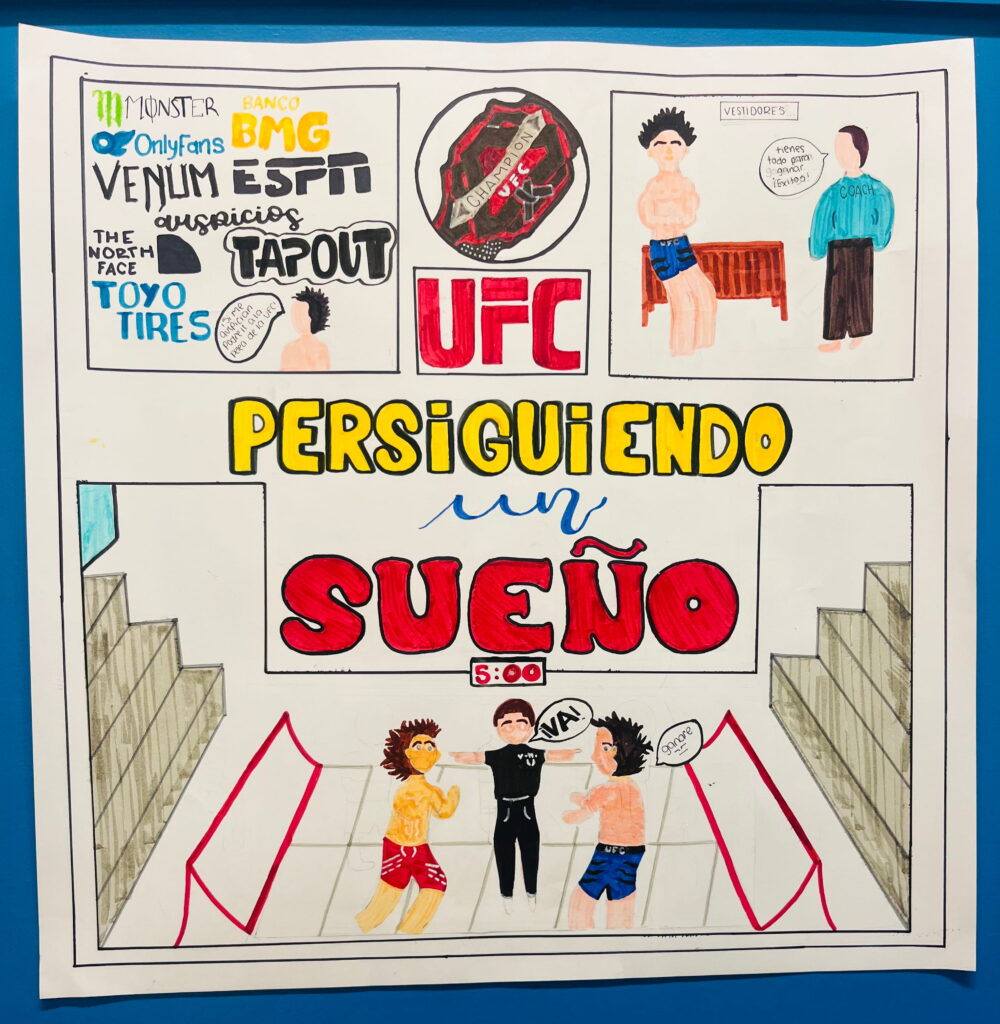 MONSTER
BANCO
BMG
OnlyFans
VENUM
ESPN
auspicios
THE
NORTH
FACE
TAPOUT
TOYO
TIRES
¡Si me
auspician
a la
pelea de la UFC!
CHAMPION
UFC
UFC
VESTIDORES
tienes
todo para
ganar
¡Exitos!
COACH
UFC
PERSiGUiENDO
un
SUEÑO
5:00
¡VA!
ganare
UFC